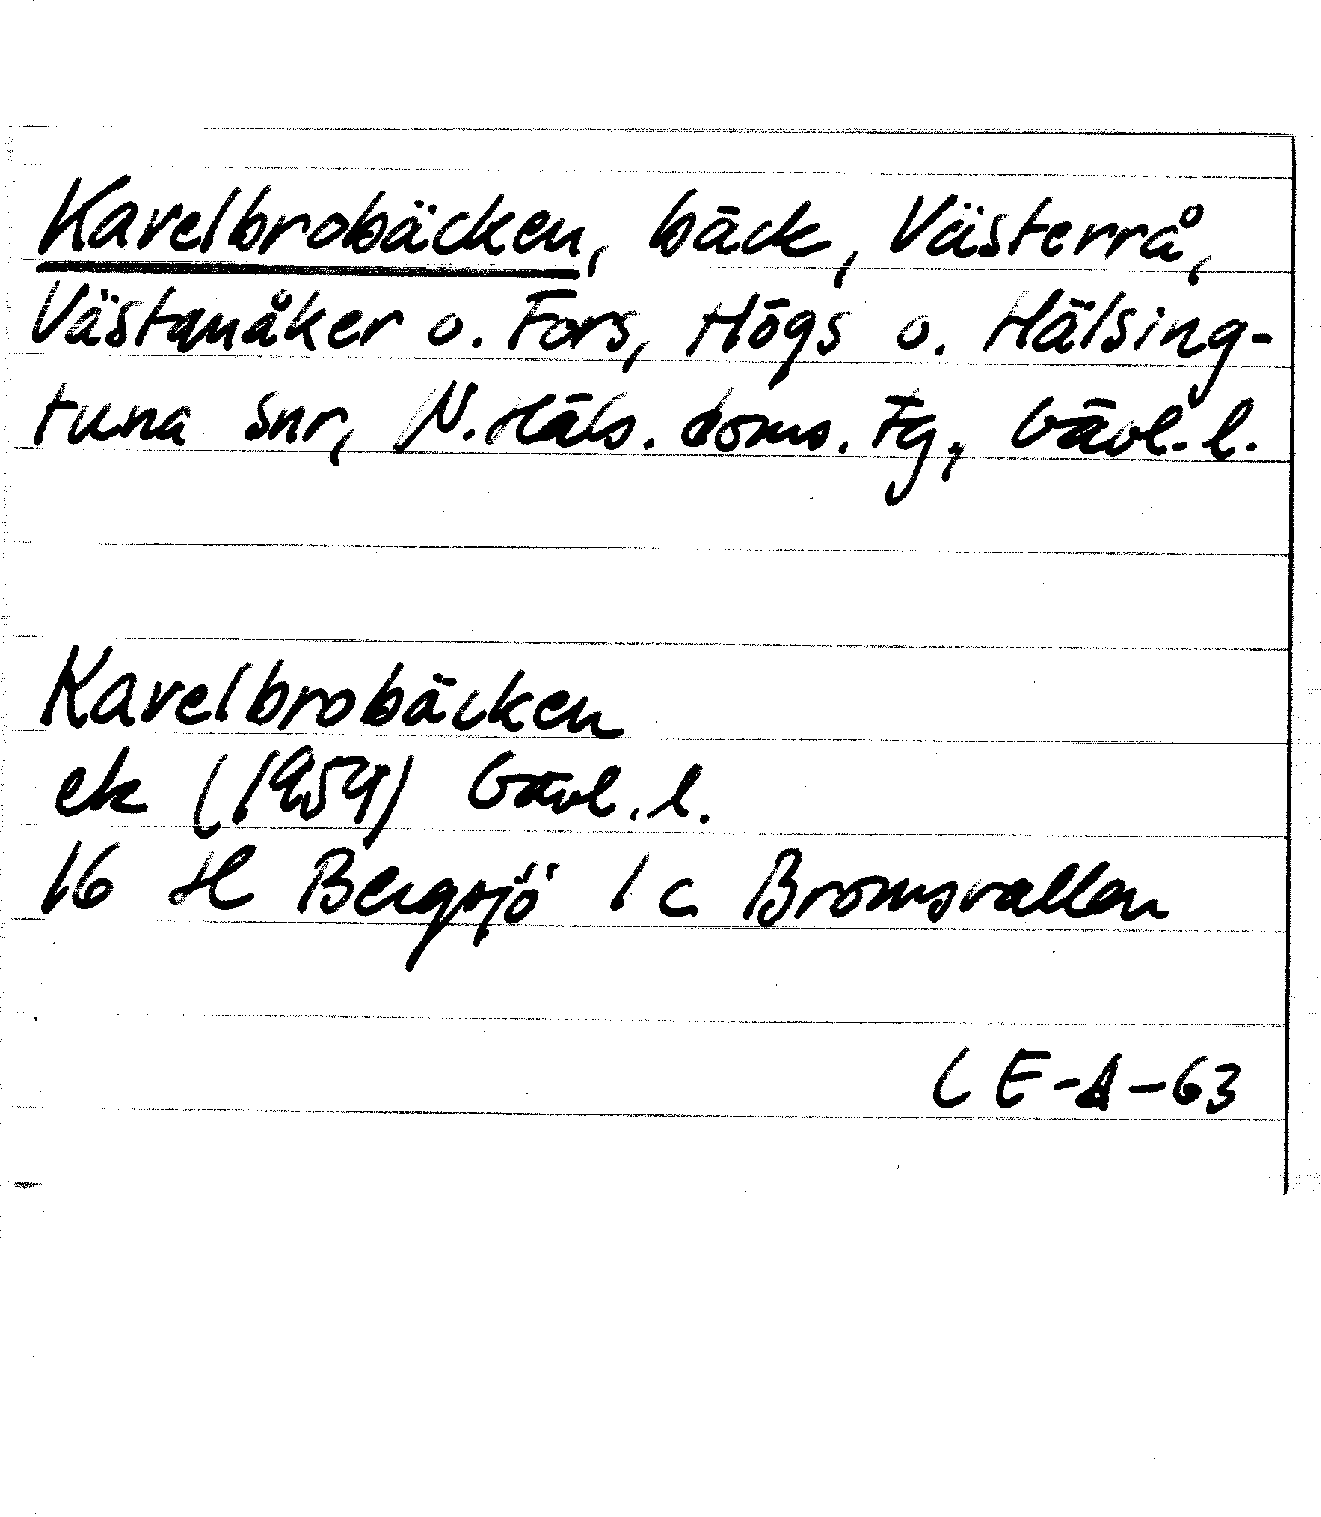 Kavelbrobäcken, bäck, Västerrå,
Västanåker o. Fors, Högs o. Hälsing-
tuna snr, N. Häls. doms. Fg, Gävl. l.
Kavelbrobäcken
ek (1959) Gävl. l.
16 H Bergsjö 1 c Bromsvallen
LE-A-63